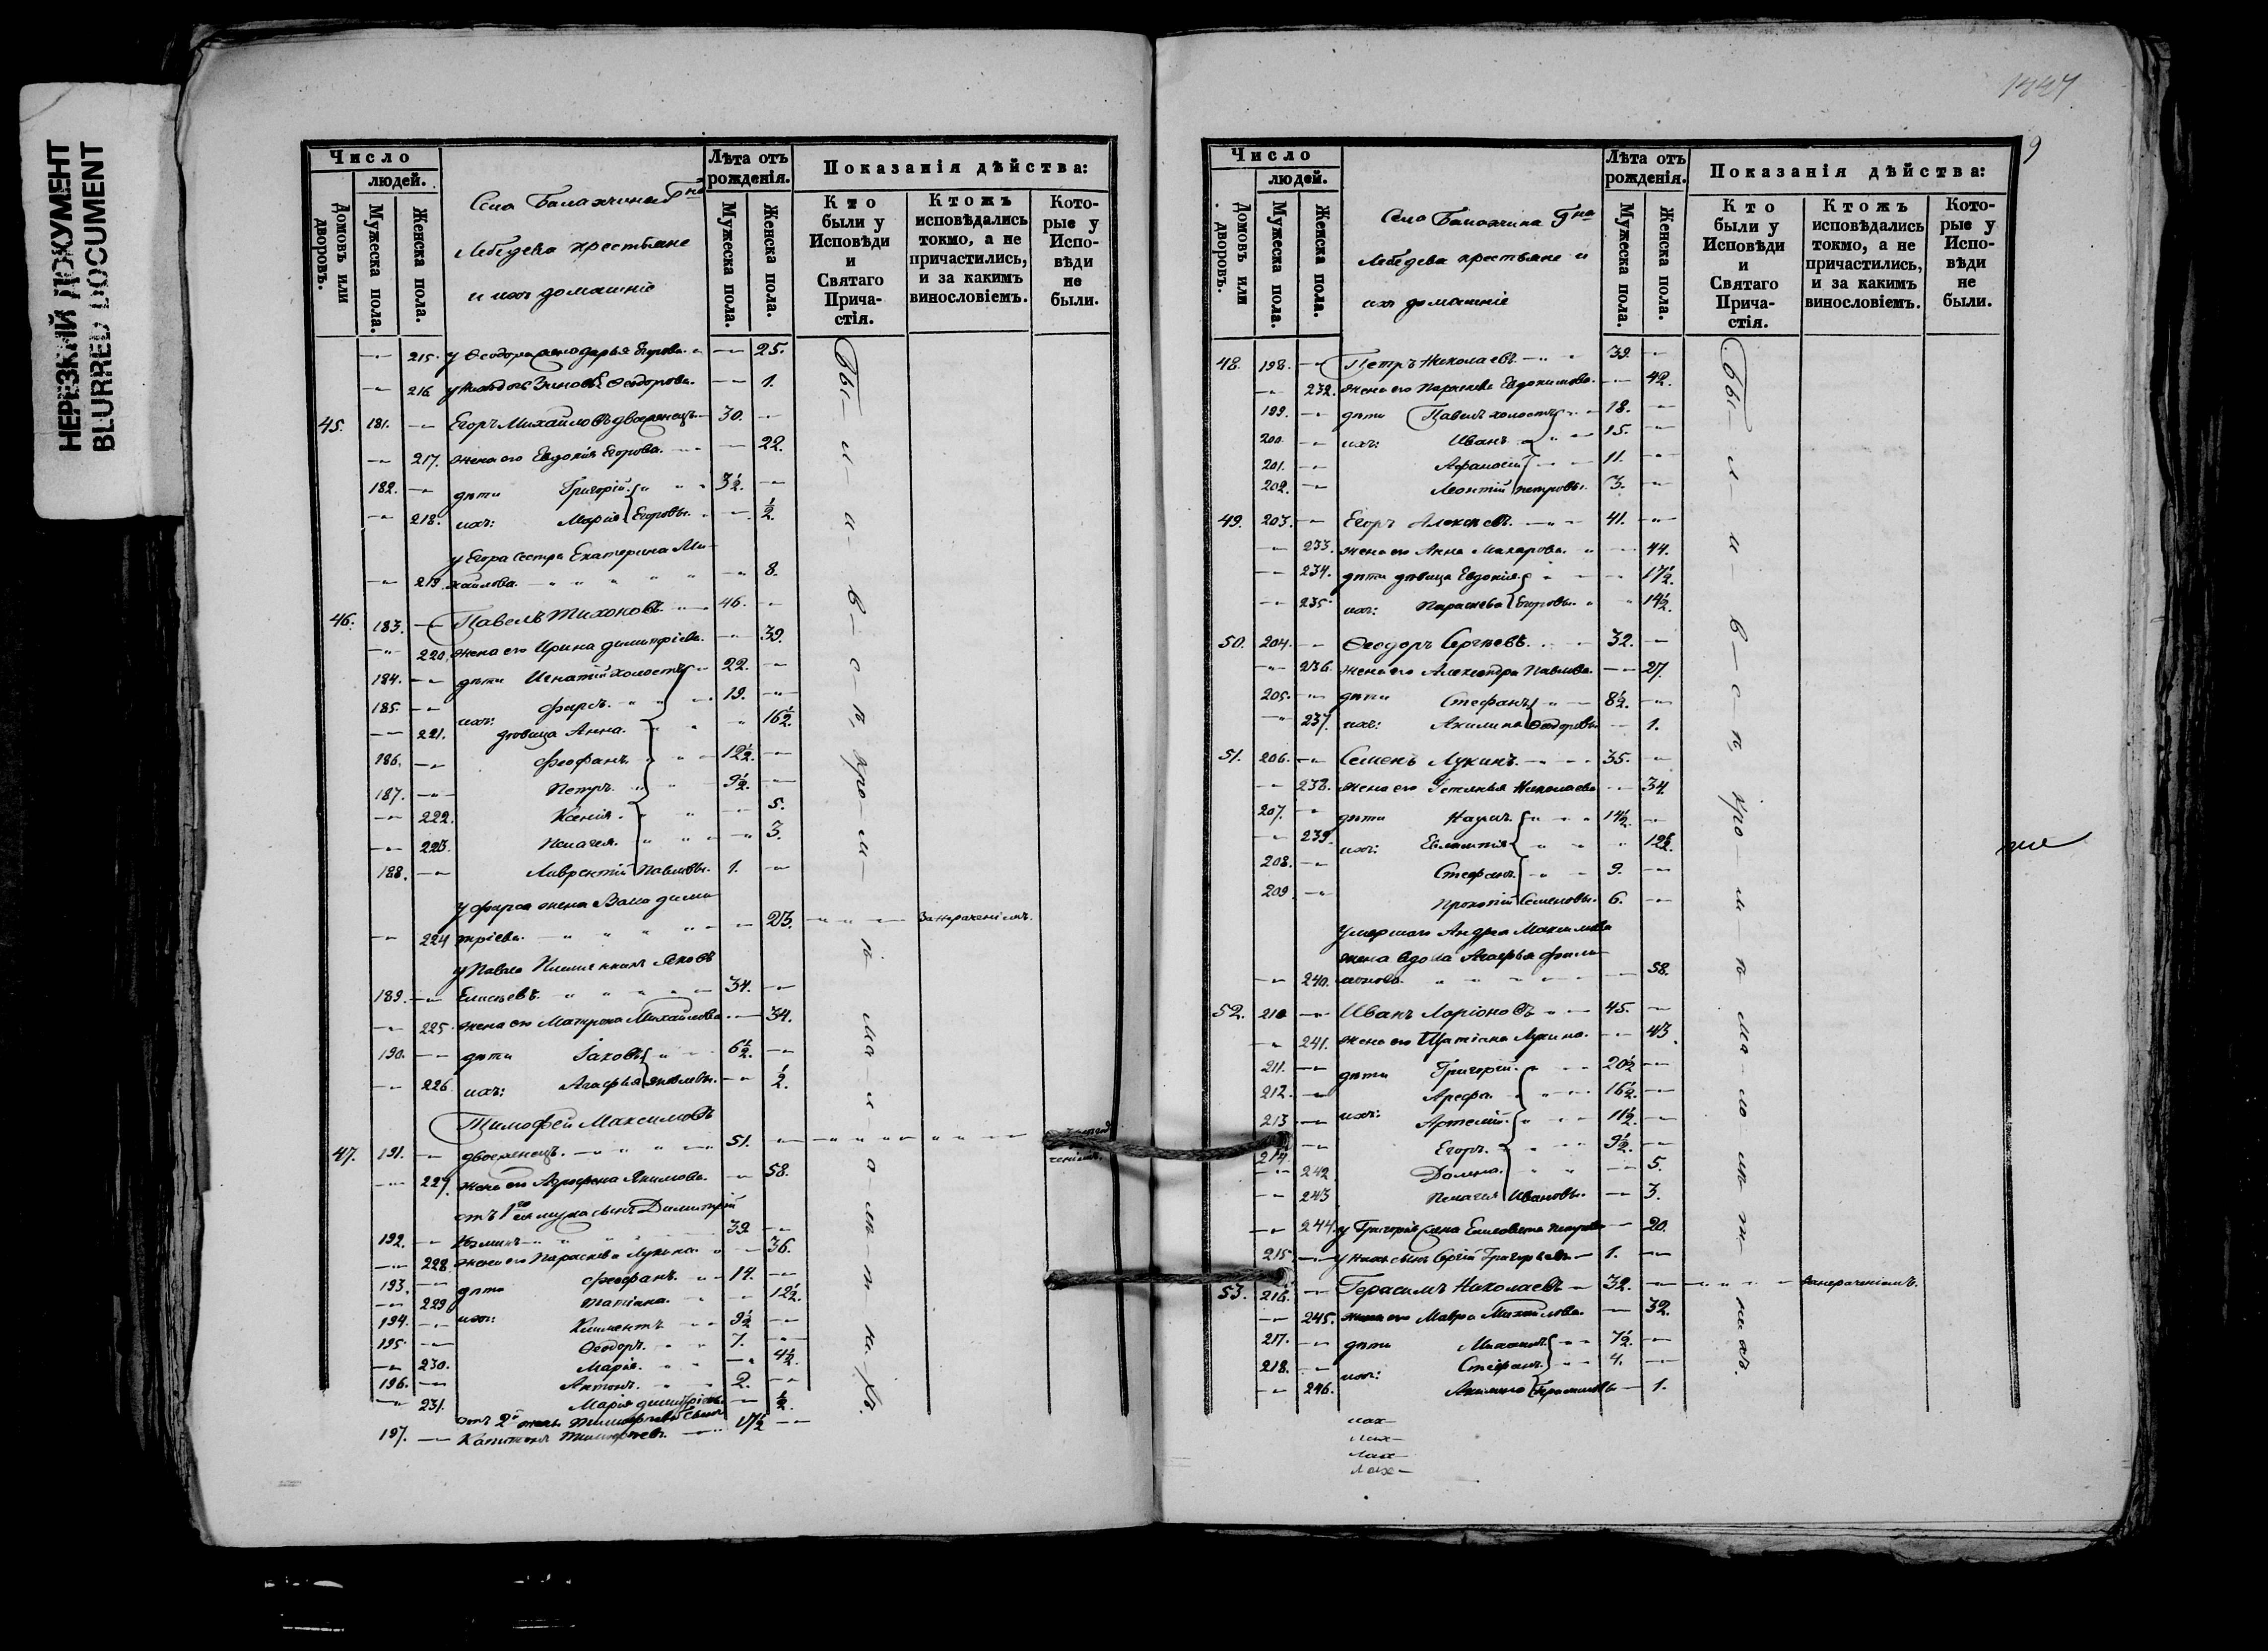 НЕРЕЗКИЙ ДОКУМЕНТ
BLURRED DOCUMENT
Число
людей.
Домовъ или дворовъ.
Мужеска пола.
Женска пола.
Лѣта отъ рожденія.
Мужеска пола.
Женска пола.
Показанія дѣйства:
Кто были у Исповѣди и Святаго Прича-стія.
Ктожъ исповѣдались токмо, а не причастились, и за какимъ винословіемъ.
Кото-рые у Испо-вѣди не были.
Лебедева крестьяне
и ихъ домашніе
215. 25.
216. 1.
45. 181. Егоръ Михайловъ двоеженецъ 30.
217. жена его Евдокія Егорова. 22.
182. дѣти Григорій 3½.
218. ихъ: Марія Егоровы. ½.
у Егора сестра Екатерина Ми-
219. хайлова. 8.
46. 183. Павелъ Тихоновъ 46.
220. жена его Ирина Димитріева. 39.
184. дѣти Игнатій холостъ 22.
185. ихъ: Фирсъ. 19.
221. дѣвица Анна. 16½.
186. Феофанъ. 12½.
187. Петръ. 9½.
222. Ксенія. 5.
223. Пелагея. 3.
188. Лаврентій Павловы. 1.
у Фирса жена Васса Дими-
224. тріева. 23. За нераченіемъ.
у Павла Яковъ
189. Елисѣевъ. 34.
225. жена его Матрона Михайлова. 34.
190. дѣти Іаковъ 6½.
226. ихъ: Агафья Яковлевы. ½.
Тимофей Максимовъ
47. 191. двоеженецъ. 51.
227. жена его Агрофена Якимова. 58.
отъ 1го ея мужа сынъ Димитрій
192. 39.
228. жена его Параскева Лукина. 36.
193. дѣти Феофанъ. 14.
229. Татіана. 12½.
194. ихъ: Климентъ 9½.
195. Ѳеодоръ. 7.
230. Марія. 4½.
196. Антонъ. 2.
231. Марія Димитріевы ½.
197. Тимофеевъ. 17½
Были и исповѣ
9
Число
людей.
Домовъ или дворовъ.
Мужеска пола.
Женска пола.
Село Балахчина Гна
Лебедева крестьяне и
ихъ домашніе
Лѣта отъ рожденія.
Мужеска пола.
Женска пола.
Показанія дѣйства:
Кто были у Исповѣди и Святаго Прича-стія.
Ктожъ исповѣдались токмо, а не причастились, и за какимъ винословіемъ.
Кото-рые у Испо-вѣди не были.
48. 198. Петръ Николаевъ 39.
232. жена его Параскева Евдокимова. 42.
199. дѣти Павелъ холостъ 18.
200. ихъ: Иванъ 15.
201. Афанасій 11.
202. Леонтій Петровы. 3.
49. 203. Егоръ Алексѣевъ. 41.
233. жена его Анна Макарова. 44.
234. дѣти дѣвица Евдокія 17½.
235. ихъ: Параскева Егоровы. 14½.
50. 204. Ѳеодоръ Сергѣевъ. 32.
236. жена его Александра Павлова. 27.
205. дѣти Стефанъ 8½.
237. ихъ: Акилина Ѳеодоровы 1.
51. 206. Семенъ Лукинъ. 35.
238. жена его Устинья Николаева 34.
207. дѣти Наумъ. 14½.
239. ихъ: Евлампія 12½.
208. Стефанъ. 9.
209. Прокопій Семеновы. 6.
Умершаго Андрея Максимова
жена вдова Агафья Фили-
240. монова. 58.
52. 210. Иванъ Ларіоновъ 45.
241. жена его Татіана Лукина. 43.
211. дѣти Григорій. 20½
212. Арефа. 16½.
213 ихъ: Артемій. 11½.
214 Егоръ. 9½.
242 Домна. 5.
243 Пелагея Ивановы. 3.
244. у Григорія жена Елисавета Петрова 20.
215. у нихъ сынъ Сергій Григорьевъ 1.
53. 216. Герасимъ Николаевъ 32. За нераченіемъ.
245. жена его Мавра Михайлова. 32.
217. дѣти Михаилъ 7½.
218. ихъ: Стефанъ. 4.
246. Акилина Герасимовы 1.